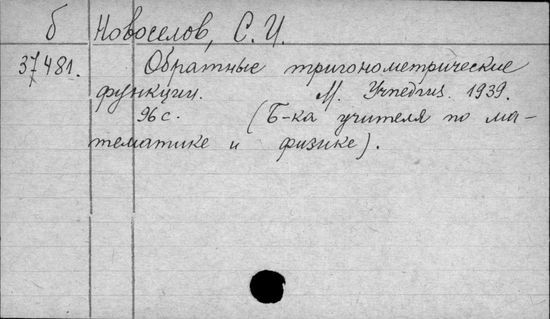 б Новоселов, С. И.
37481. Обратные тригонометрические
функции. М. Учпедгиз. 1939.
96 с. (Б-ка учителя по ма-
тематике и физике).